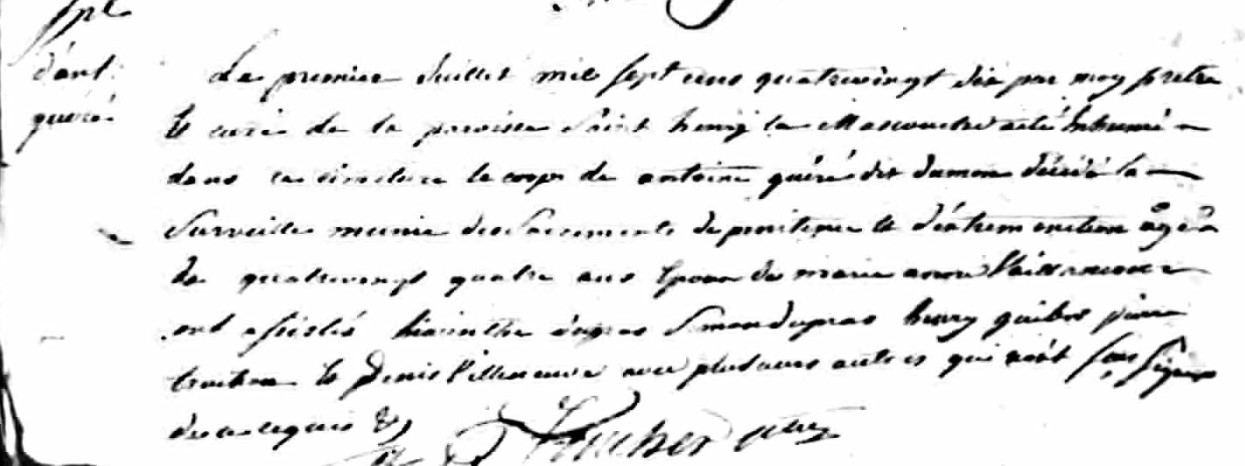 spt
d'ant
queré
Le premier Juillet mil sept cens quatrevingt dix par moy pretre
et curé de la paroisse Saint henry la Mascouche a été Inhumé
dans ce cimetiere le corps de antoine quéré dit dumon décédé la
Surveille munie des Sacrements de penitence et d'éxtrem onction agé
de quatrevingt quatre ans Epoux de marie anne
ont assistés hiacinthe dupras Simon dupras henry guibor pierre
et Denis Villeneuve avec plusieurs autres qui n'ont sçu Signer
de ce requis &
Foucher ptre